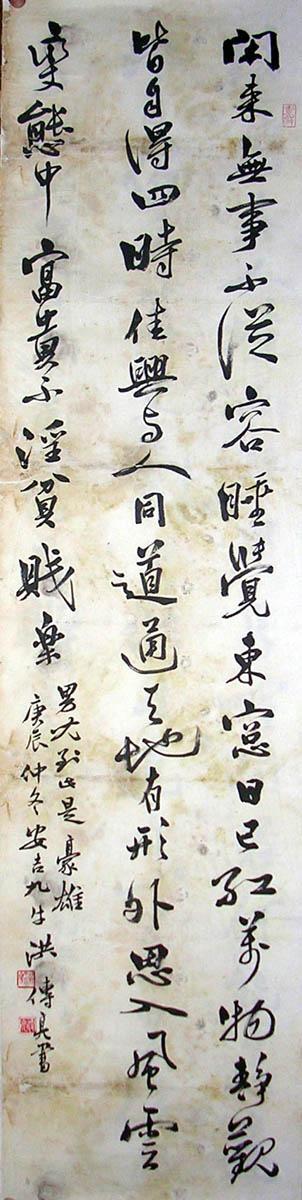 閑来無事不從容睡覺東窓日已紅萬物靜觀
皆自得四時佳興与人同道通天地有形外思入風雲
變態中富貴不淫貧賤樂
男兒到此是豪雄
庚辰仲冬安吉九牛洪傅書